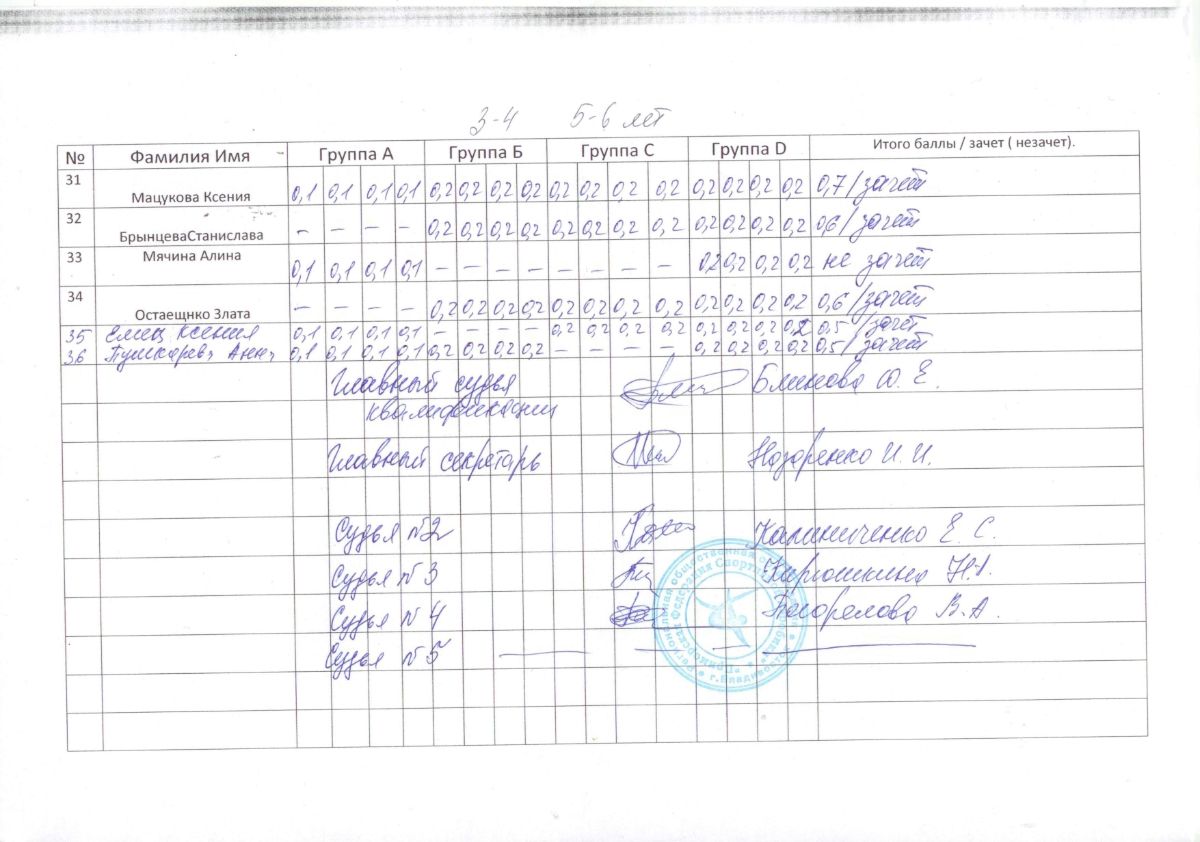 3-4 5-6 лет
№ Фамилия Имя Группа А Группа Б Группа С Группа D Итого баллы / зачет ( незачет).
31 Мацукова Ксения 0,1 0,1 0,1 0,1 0,2 0,2 0,2 0,2 0,2 0,2 0,2 0,2 0,2 0,2 0,2 0,2 0,7/зачет
32 БрынцеваСтанислава – – – – 0,2 0,2 0,2 0,2 0,2 0,2 0,2 0,2 0,2 0,2 0,2 0,2 0,6/зачет
33 Мячина Алина 0,1 0,1 0,1 0,1 – – – – – – – – 0,2 0,2 0,2 0,2 не зачет
34 Остаещнко Злата – – – – 0,2 0,2 0,2 0,2 0,2 0,2 0,2 0,2 0,2 0,2 0,2 0,2 0,6/зачет
35 Емец Ксения 0,1 0,1 0,1 0,1 – – – – 0,2 0,2 0,2 0,2 0,2 0,2 0,2 0,2 0,5/зачет
36 Пушкарев, Анн, 0,1 0,1 0,1 0,1 0,2 0,2 0,2 0,2 – – – – 0,2 0,2 0,2 0,2 0,5/зачет
Главный судья Блинова Ю. Е.
квалификации
Главный секретарь Назаренко И. И.
Судья №2 Калиниченко Е. С.
Судья №3 Кирюшкина Н.А.
Судья №4 Погорелова В.А.
Судья №5
Региональная общественная
Федерация
г.Владивосток